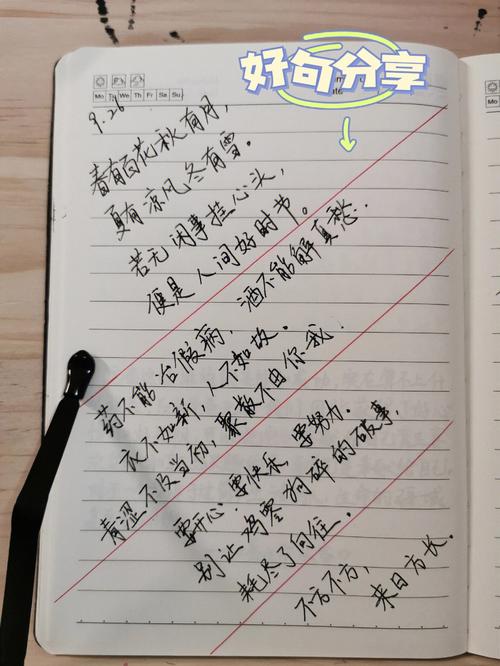 好句分享
Mo Tu We Th Fr Sa Su
9.26
春有百花秋有月,
夏有凉风冬有雪。
若无闲事挂心头,
便是人间好时节。
药不能治假病, 酒不能解真愁.
衣不如新, 人不如故。
青涩不及当初, 聚散不由你我!
要开心. 要快乐. 要努力.
别让鸡零狗碎的破事,
耗尽了向往.
不方不方, 来日方长.